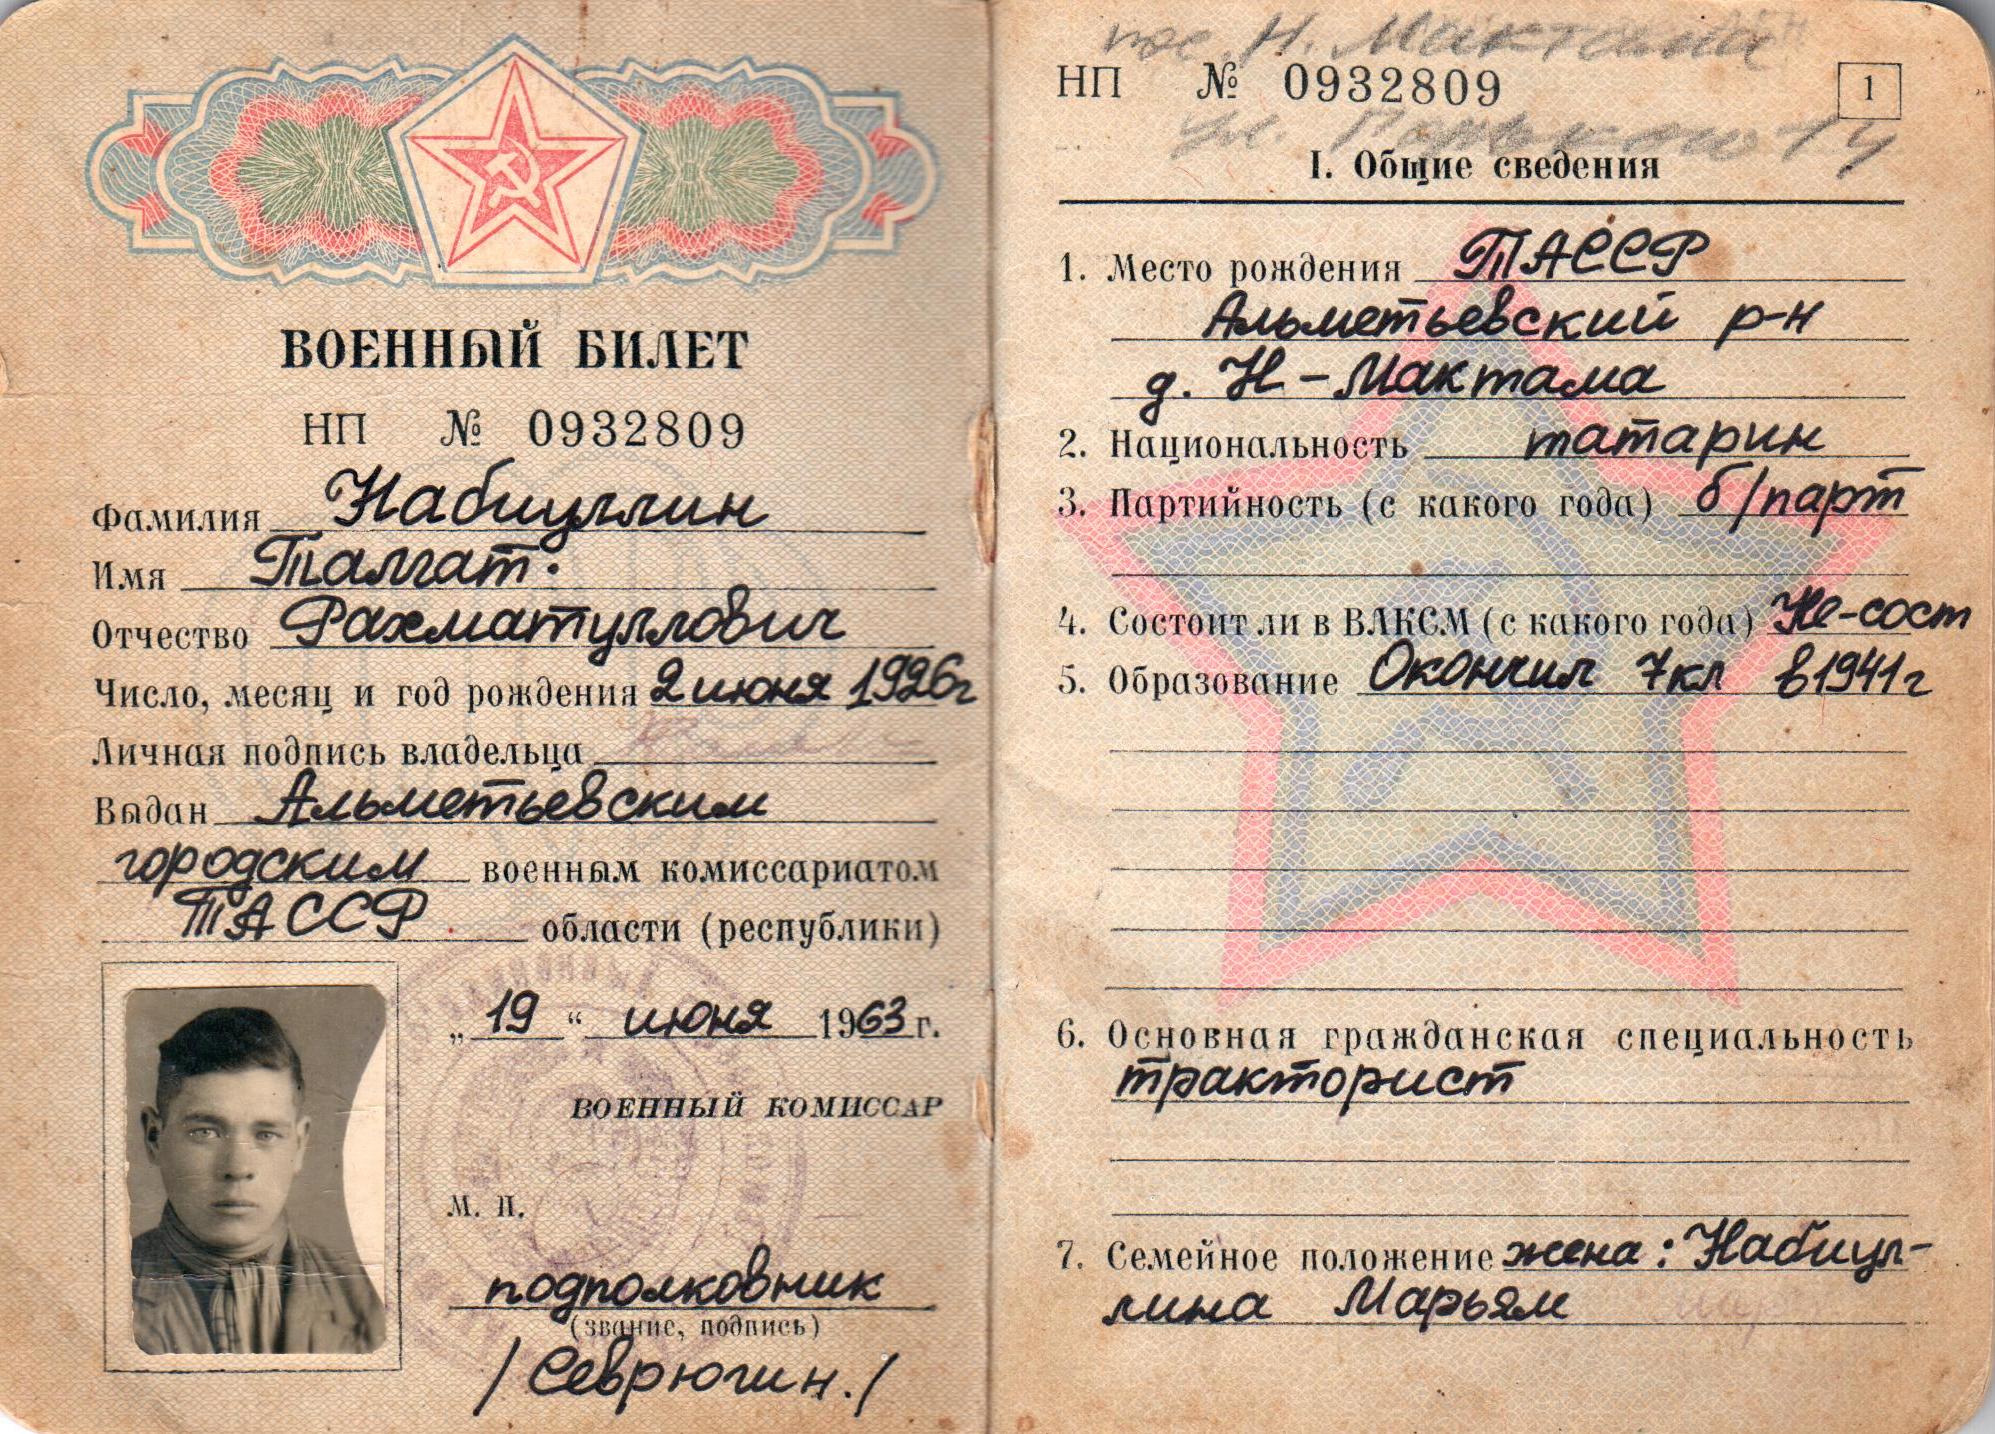 ВОЕННЫЙ БИЛЕТ
НП № 0932809
Фамилия Набиуллин
Имя Талгат.
Отчество Рахматуллович
Число, месяц и год рождения 2 июня 1926г
Личная подпись владельца
Выдан Альметьевским
городским военным комиссариатом
ТАССР области (республики)
„19“ июня 1963 г.
ВОЕННЫЙ КОМИССАР
М. П.
подполковник
(звание, подпись)
/Севрюгин./
пос. Н. Мактама
НП № 0932809
1
ул.
I. Общие сведения
1. Место рождения ТАССР
Альметьевский р-н
д. Н-Мактама
2. Национальность татарин
3. Партийность (с какого года) б/парт
4. Состоит ли в ВЛКСМ (с какого года) Не-сост
5. Образование Окончил 7кл в 1941г
6. Основная гражданская специальность
тракторист
7. Семейное положение жена: Набиул-
лина Марьям